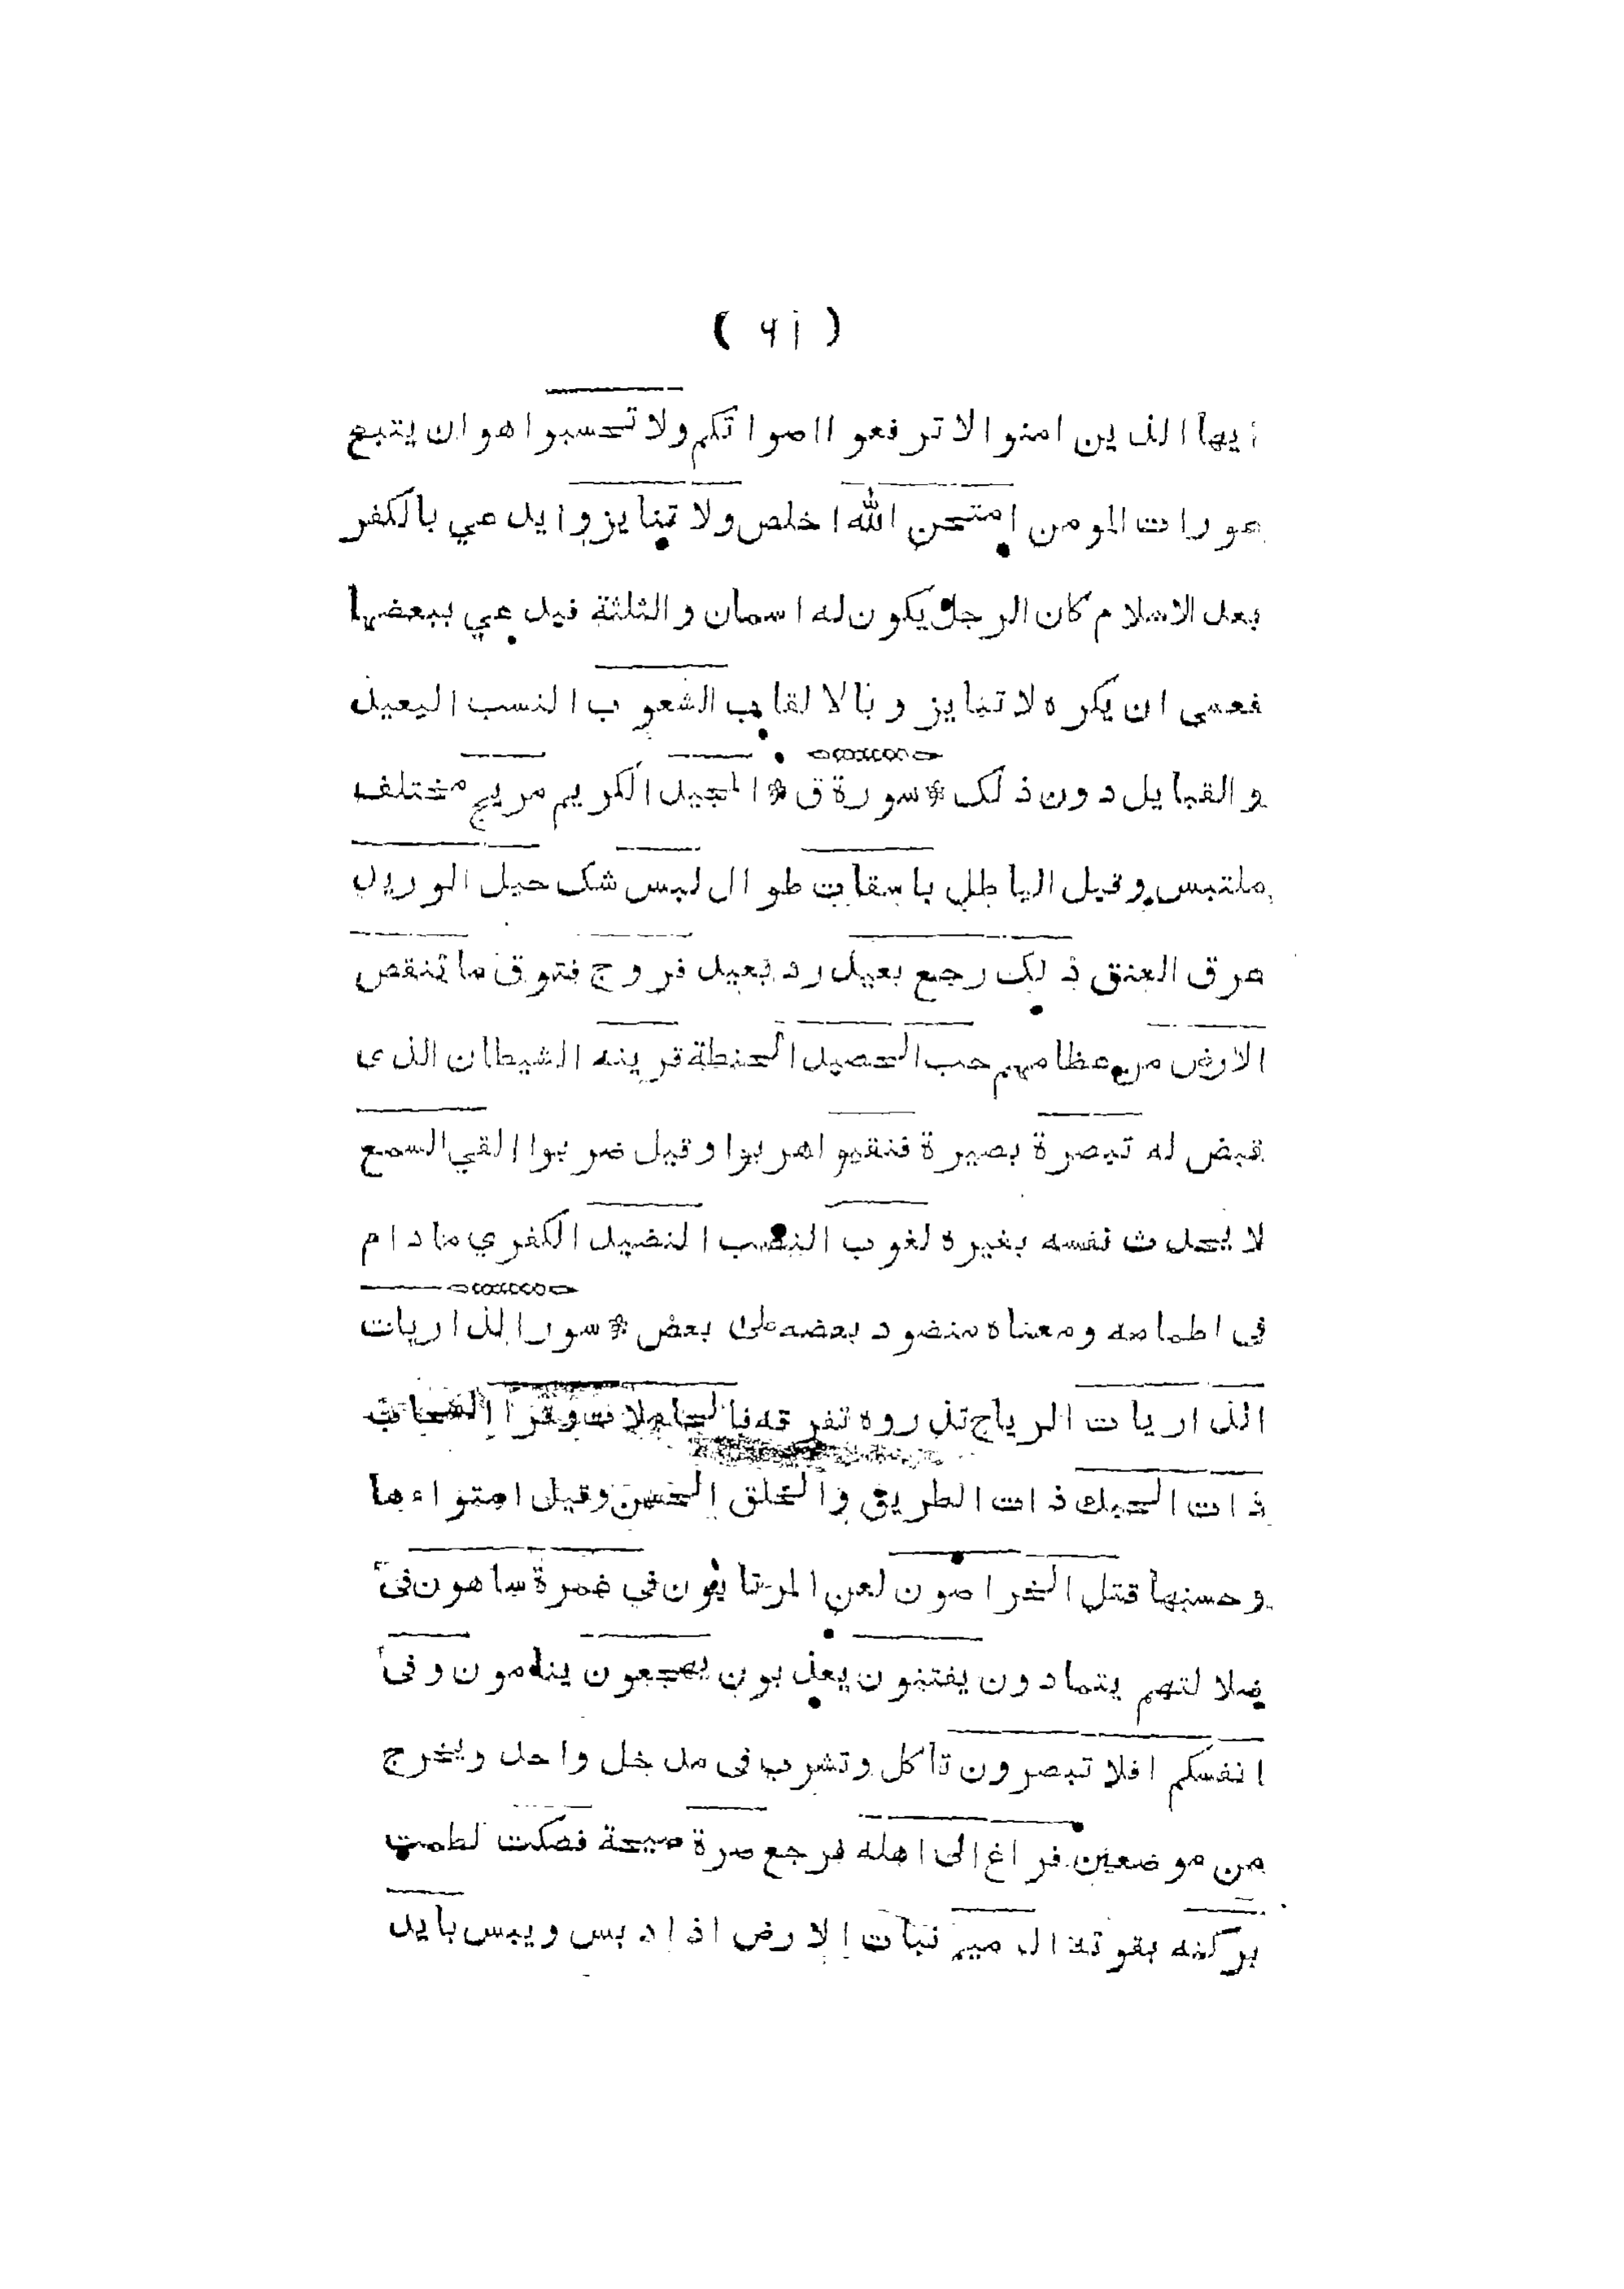 ( ٦١ )
ايها الذين امنوا لا ترفعوا اصواتكم ولا تحسبوا هو ان يتبع
عورات المومن امتحن الله اخلص ولا تنابزوا يدعي بالكفر
بعد الاسلام كان الرجل يكون له اسمان والثلثة فيدعي ببعضها
فعسى ان يكره لا تنابزوا بالالقاب الشعوب النسب البعيد
والقبايل دون ذلك * سورة ق * المجيد الكريم مريج مختلف
ملتبس وقيل الباطل باسقات طوال لبس شك حبل الوريد
عرق العنق ذلك رجع بعيد رد بعيد فروج فتوق ما تنقص
الارض من عظامهم حب الحصيد الحنطة قرينه الشيطان الذى
قيض له تبصرة بصيرة فنقبوا هربوا وقيل ضربوا القي السمع
لا يحدث نفسه بغيره لغوب النصب النضيد الكفري ما دام
فى اطمامه ومعناه منضود بعضه على بعض * سور الذاريات
الذاريات الرياح تذروه تفرقه فالحاملات وقرا السحاب
ذات الحبك ذات الطريق والخلق الحسن وقيل استواءها
وحسنها قتل الخراصون لعن المرتابون في غمرة ساهون فى
ضلالتهم يتمادون يفتنون يعذبون يهجعون ينامون وفى
انفسكم افلا تبصرون تأكل وتشرب فى مدخل واحد ويخرج
من موضعين فراغ الى اهله فرجع صرة صيحة فصكت لطمت
بركنه بقوته الرميم نبات الارض اذا دبس ويبس بايد